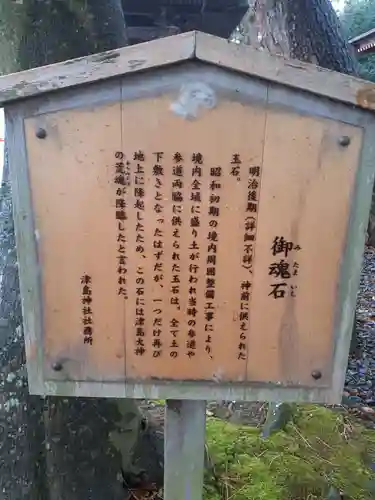 御魂石
みたまいし
明治後期(詳細不詳)、神前に供えられた
玉石。
昭和初期の境内周囲整備工事により、
境内全域に盛り土が行われ当時の参道や
参道両脇に供えられた玉石は。全て土の
下敷きとなったはずだが、一つだけ再び
地上に隆起したため、この石には津島大神
の荒魂が降臨したと言われた。
津島神社社務所